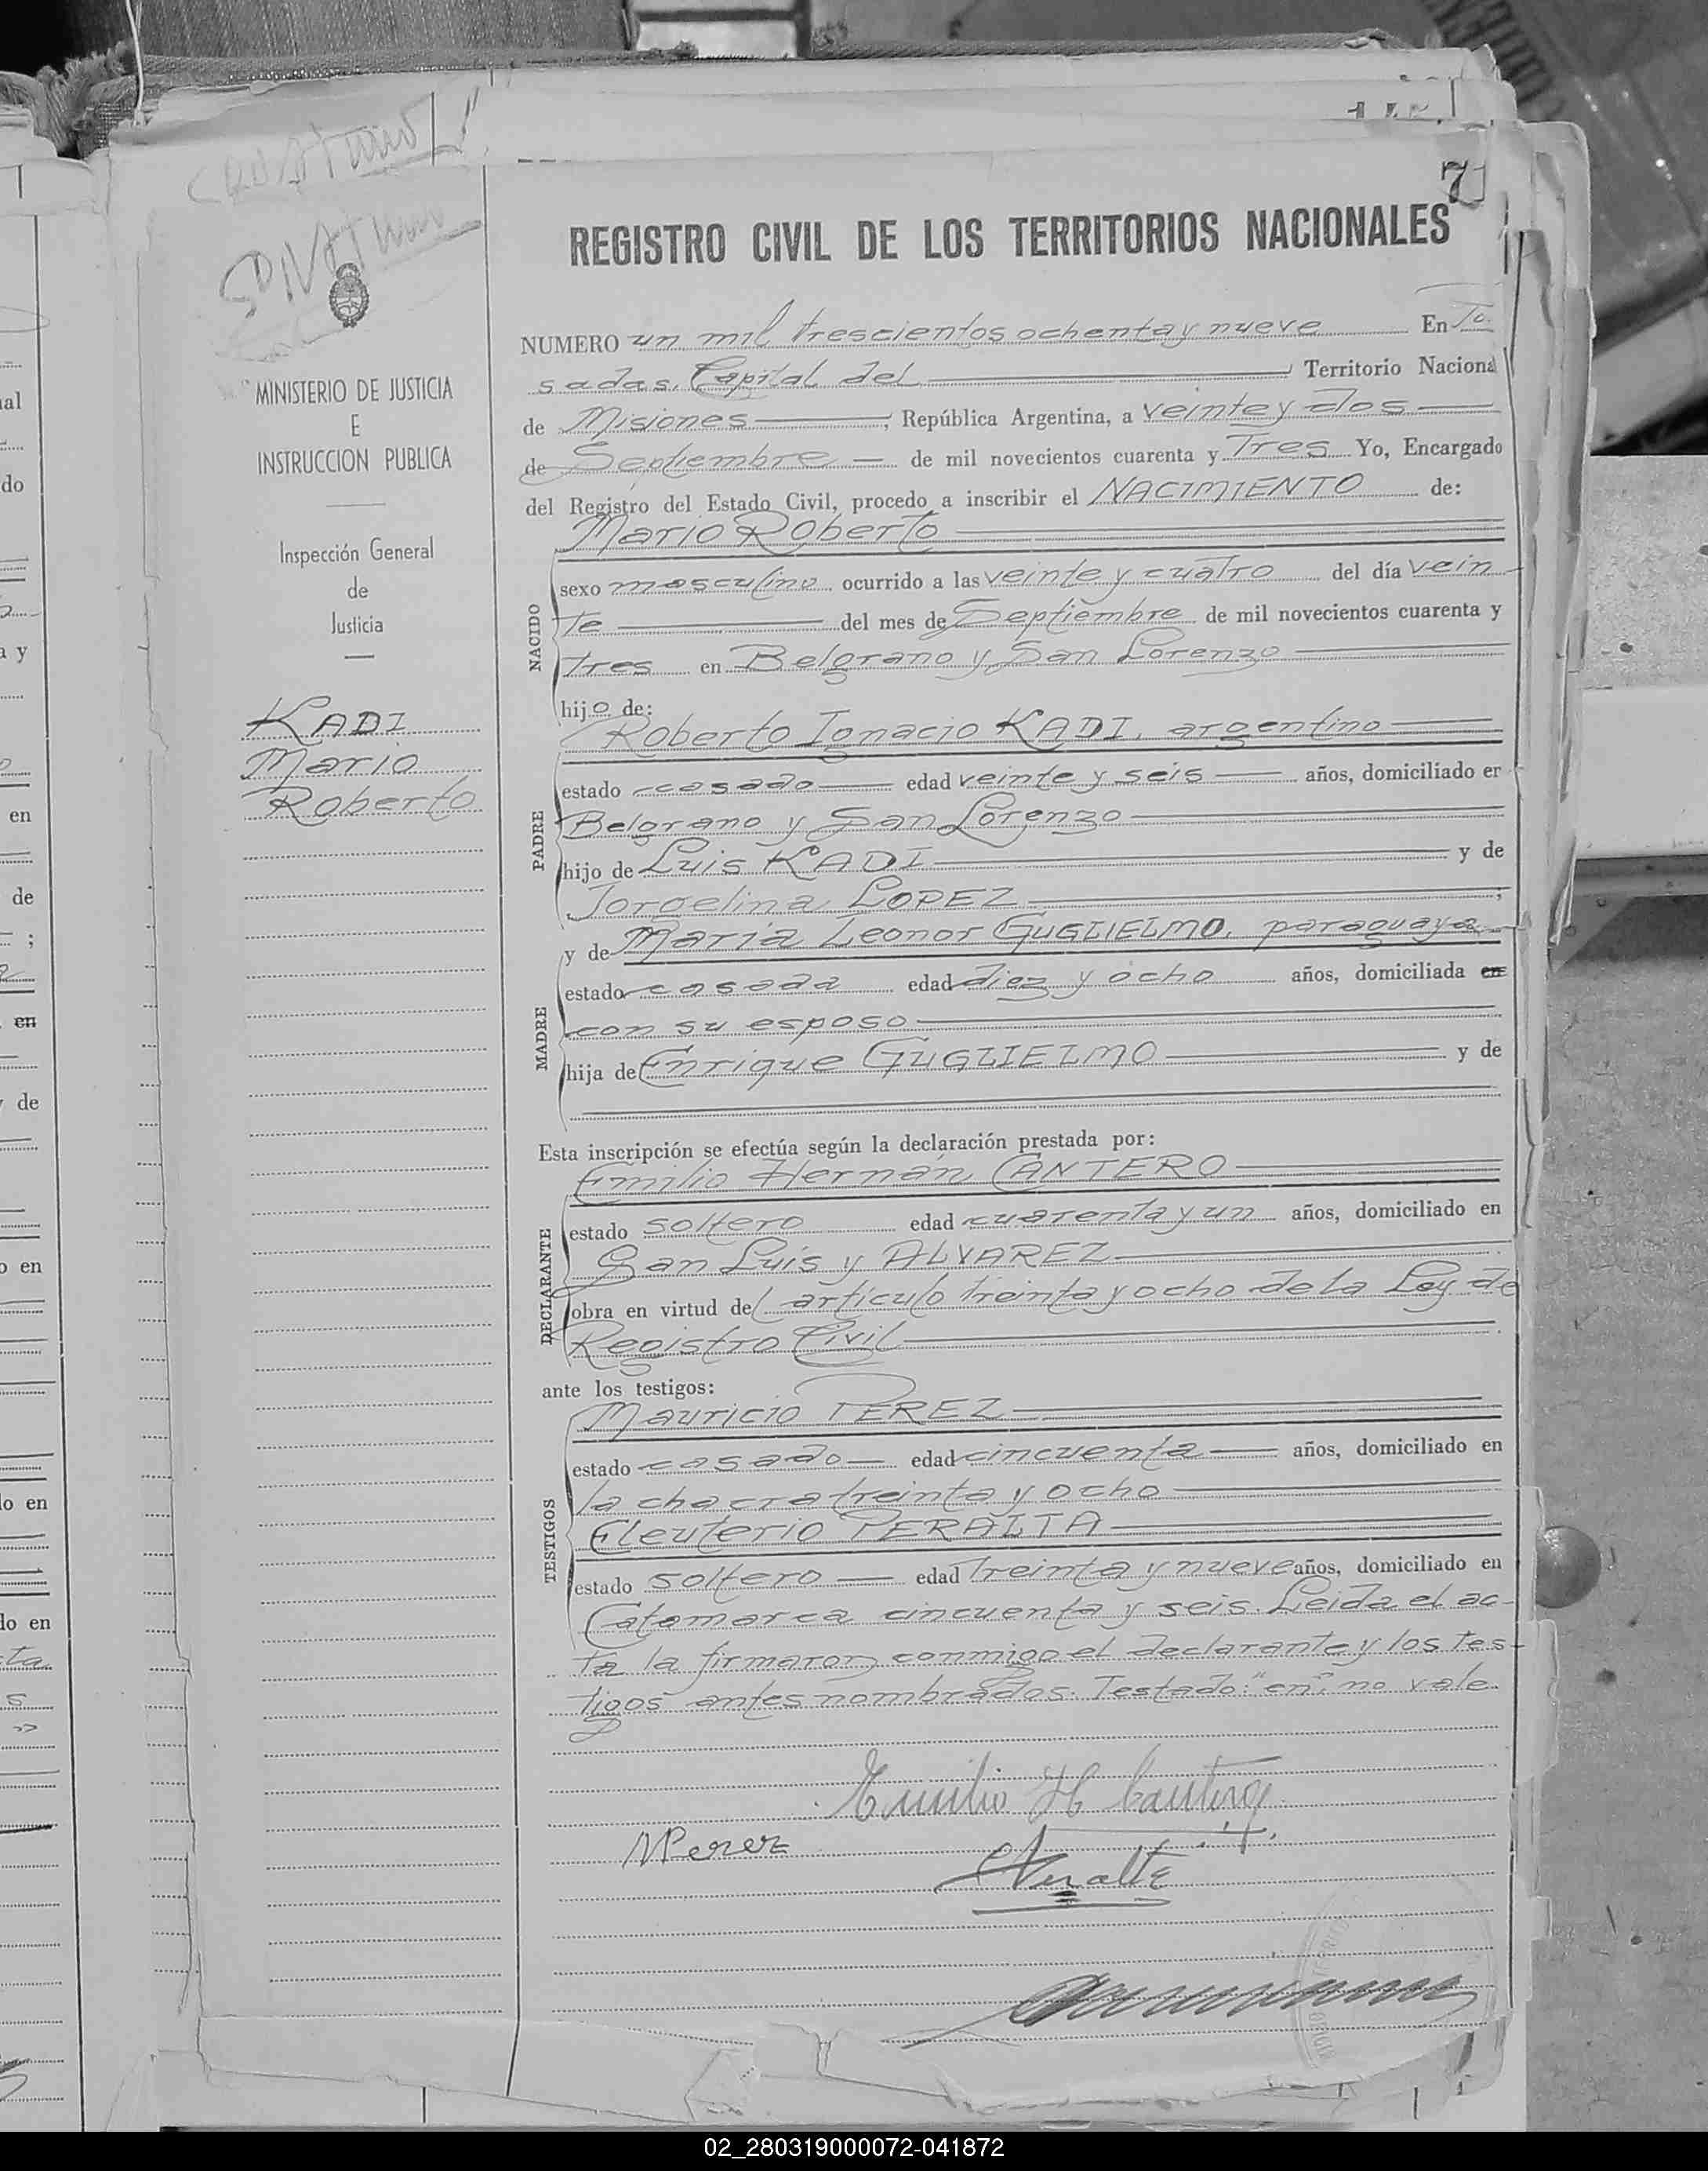 7
REGISTRO CIVIL DE LOS TERRITORIOS NACIONALES
NUMERO un mil trescientos ochenta y nueve En Po
sadas, Capital del Territorio Naciona
de Misiones, República Argentina, a veinte y dos
de Septiembre de mil novecientos cuarenta y Tres Yo, Encargado
del Registro del Estado Civil, procedo a inscribir el NACIMIENTO de:
Mario Roberto
NACIDO
sexo masculino ocurrido a las veinte y cuatro del día vein-
te del mes de Septiembre de mil novecientos cuarenta y
tres en Belgrano y San Lorenzo
hijo de:
Roberto Ignacio KADI, argentino
PADRE
estado casado edad veinte y seis años, domiciliado en
Belgrano y San Lorenzo
hijo de Luis KADI y de
Jorgelina LOPEZ;
y de María Leonor GUGLIELMO, paraguaya
MADRE
estado casada edad diez y ocho años, domiciliada en
con su esposo
hija de Enrique GUGLIELMO y de
Esta inscripción se efectúa según la declaración prestada por:
Emilio Hernán CANTERO
DECLARANTE
estado soltero edad cuarenta y un años, domiciliado en
San Luis y ALVAREZ
obra en virtud del artículo treinta y ocho de la Ley de
Registro Civil
ante los testigos:
Mauricio PEREZ
TESTIGOS
estado casado edad cincuenta años, domiciliado en
la chacra treinta y ocho
Eleuterio PERALTA
estado soltero edad Treinta y nueve años, domiciliado en
Catamarca cincuenta y seis. Leida el ac-
ta la firmaron conmigo el declarante y los tes-
tigos antes nombrados. Testado: "en": no vale.
Emilio H Cantero
MPerez
Peralta
MINISTERIO DE JUSTICIA
E
INSTRUCCION PUBLICA
Inspección General
de
Justicia
KADI
Mario
Roberto
al
do
a y
en
de
;
en
y de
o en
lo en
do en
ta
s
02_280319000072-041872